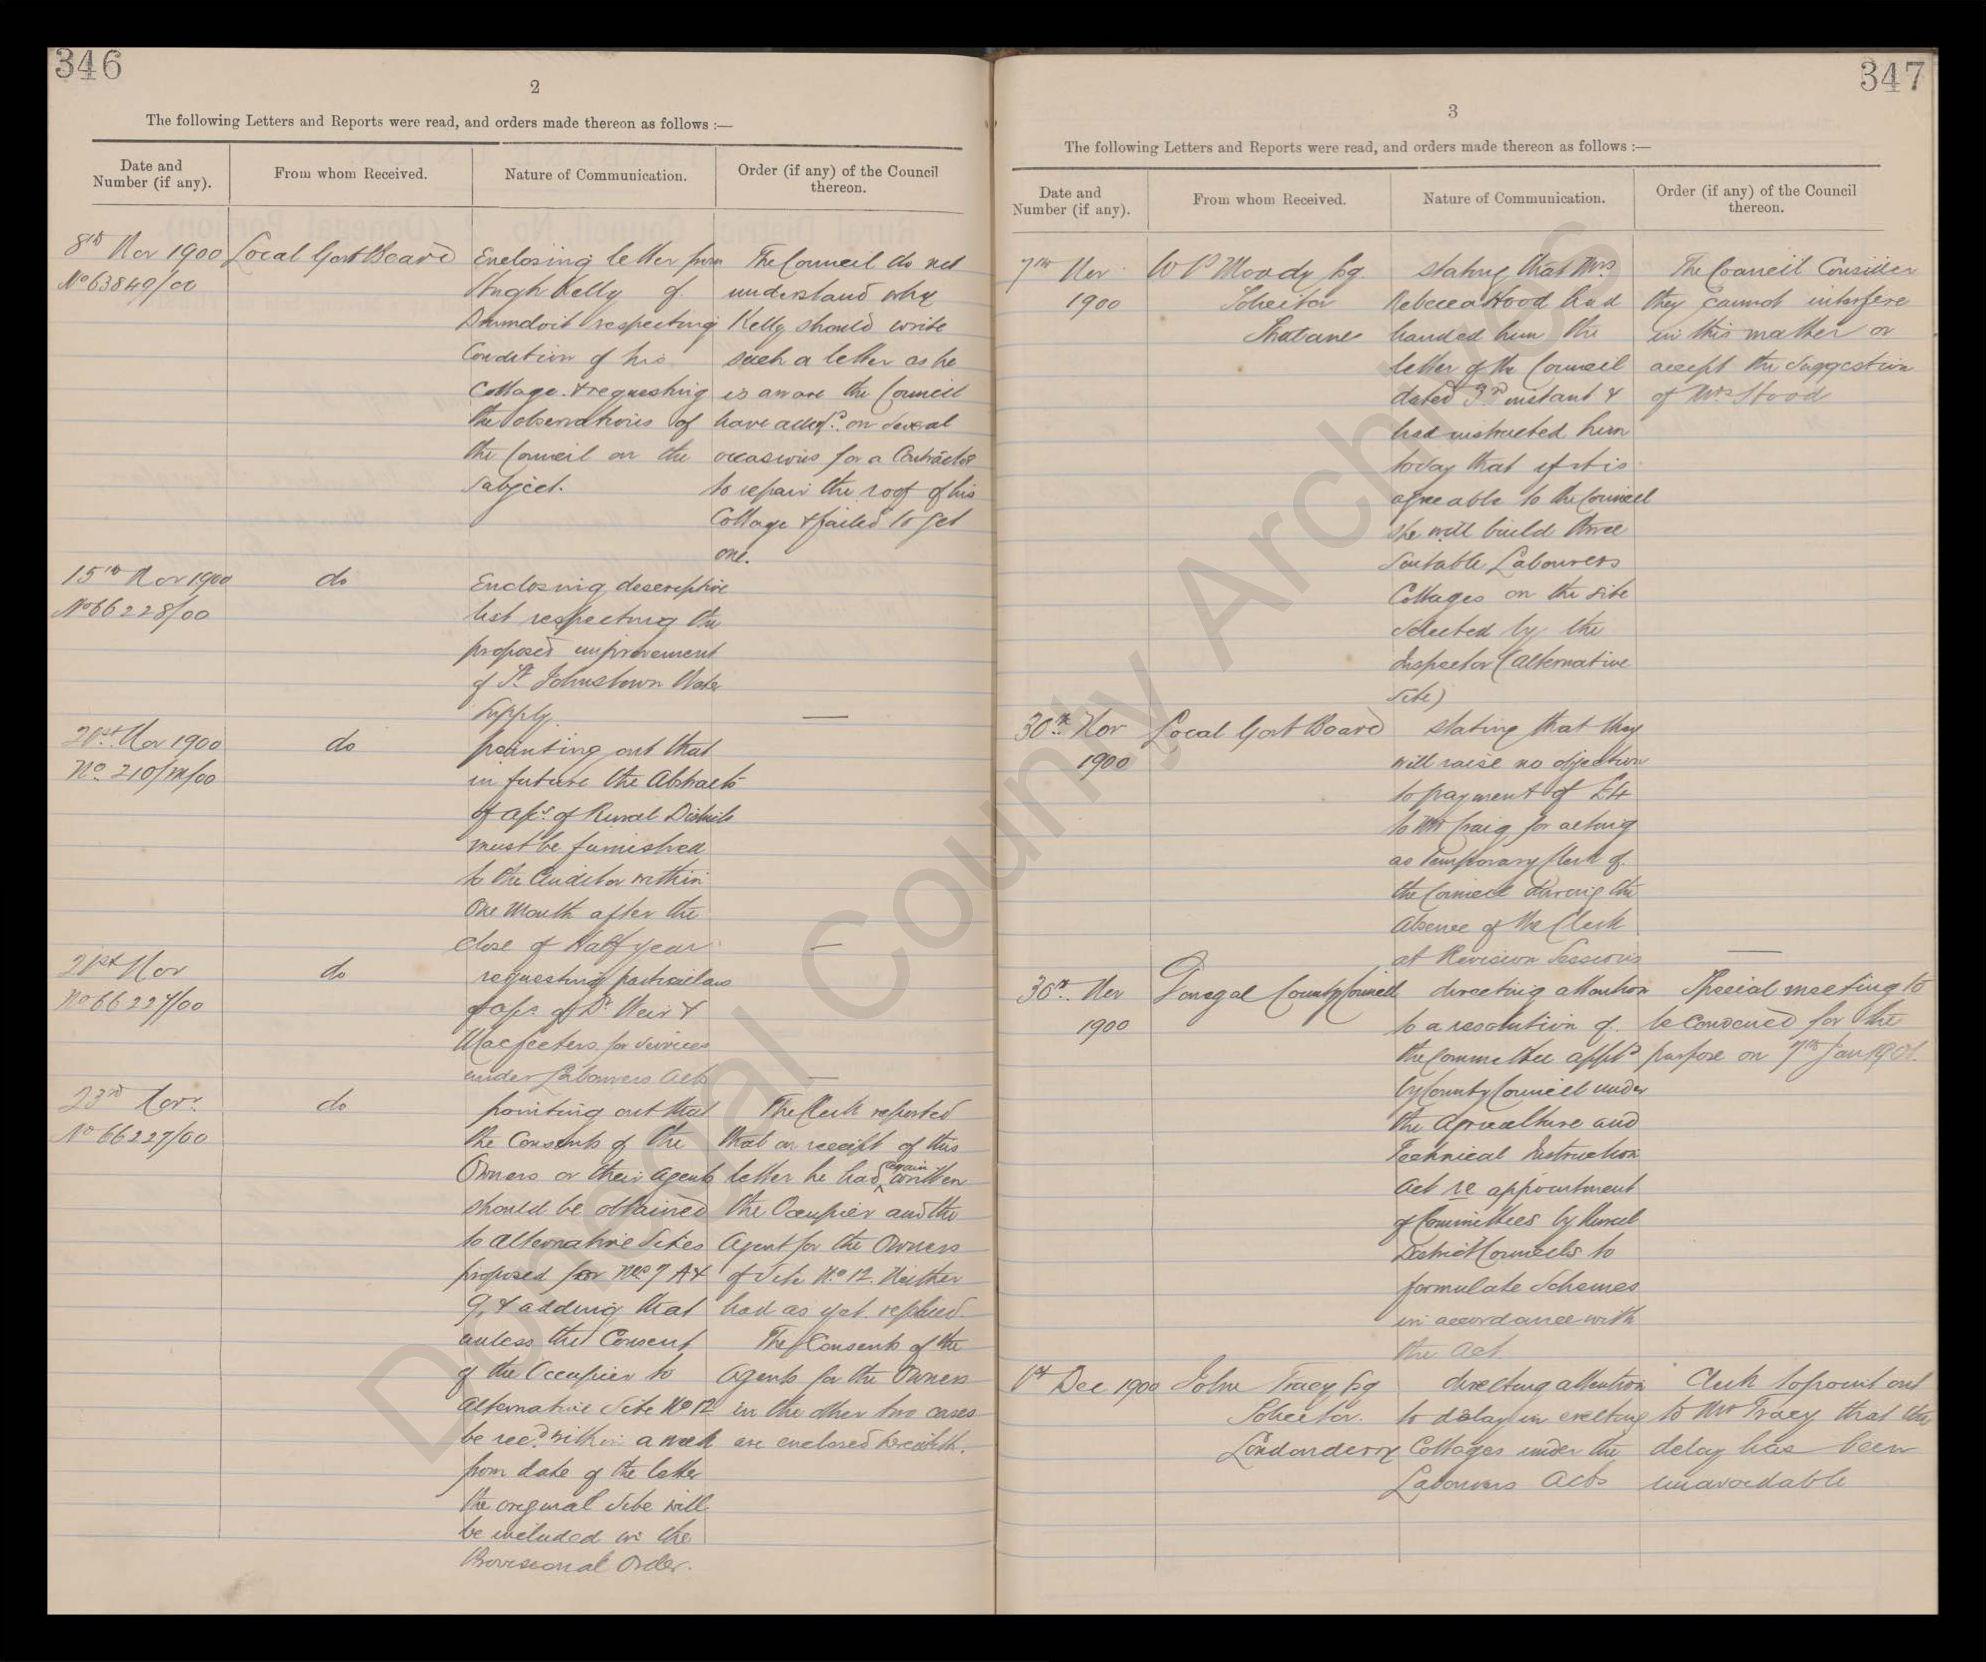 346
2
The following Letters and Reports were read, and orders made thereon as follows :—
Date and
Number (if any).
From whom Received.
Nature of Communication.
Order (if any) of the Council
thereon.
8th Nov 1900
No 63849/00
Local Govt Board
Enclosing letter from
Hugh Kelly of
Drumdoit respecting
Condition of his
Cottage & requesting
the observations of
the Council on the
Subject.
The Council do not
understand why
Kelly should write
such a letter as he
is aware the Council
have advd. on several
occasions for a Contractor
to repair the roof of his
Cottage & failed to get
one.
15th Nov 1900
No 66228/00
do
Enclosing descriptive
list respecting the
proposed improvement
of St Johnstown Water
Supply.
—
21st Nov 1900
No. 210/M/00
do
pointing out that
in future the Abstracts
of a/cs. of Rural Districts
must be furnished
to the Auditor within
One Month after the
close of Half year
—
21st Nov
No 66227/00
do
requesting particulars
of a/cs. of Dr Weir &
Macfeeters for services
under Labourers Acts
—
23rd Novr.
No 66227/00
do
pointing out that
the Consents of the
Owners or their agents
should be obtained
to alternative Sites
proposed for Nos 7A &
9, & adding that
unless the Consent
of the Occupier to
alternative Site No 12
be recd. within a week
from date of the letter
the original Site will
be included in the
Provisional Order.
The Clerk reported
that on receipt of this
letter he had again written
the Occupier and the
Agent for the Owners
of Site No. 12. Neither
had as yet replied.
The Consents of the
Agents for the Owners
in the other two cases
are enclosed herewith.
347
3
The following Letters and Reports were read, and orders made thereon as follows :—
Date and
Number (if any).
From whom Received.
Nature of Communication.
Order (if any) of the Council
thereon.
7th Nov
1900
W P Moody Esq
Solicitor
Strabane
stating that Mrs
Rebecca Hood had
handed him the
letter of the Council
dated 3rd instant &
had instructed him
today that if it is
agreeable to the Council
she will build three
Suitable Labourers
Cottages on the site
selected by the
Inspector (alternative
site)
The Council Consider
they cannot interfere
in this matter or
accept the suggestion
of Mrs Hood
30th. Nov
1900
Local Govt Board
stating that they
will raise no objection
to payment of £4
to Mr Craig for acting
as Temporary Clerk of
the Council during the
absence of the Clerk
at Revision Sessions
—
30th. Nov
1900
Donegal County Council
directing attention
to a resolution of
the Committee apptd
by County Council under
the Agriculture and
Technical Instruction
Act re appointment
of Committees by Rural
District Councils to
formulate Schemes
in accordance with
the Act
Special meeting to
be convened for the
purpose on 7th Jan 1901.
1st Dec 1900
John Tracy Esq
Solicitor.
Londonderry
directing attention
to delay in erecting
Cottages under the
Labourers Acts
Clerk to point out
to Mr Tracy that the
delay has been
unavoidable
Donegal County Archives